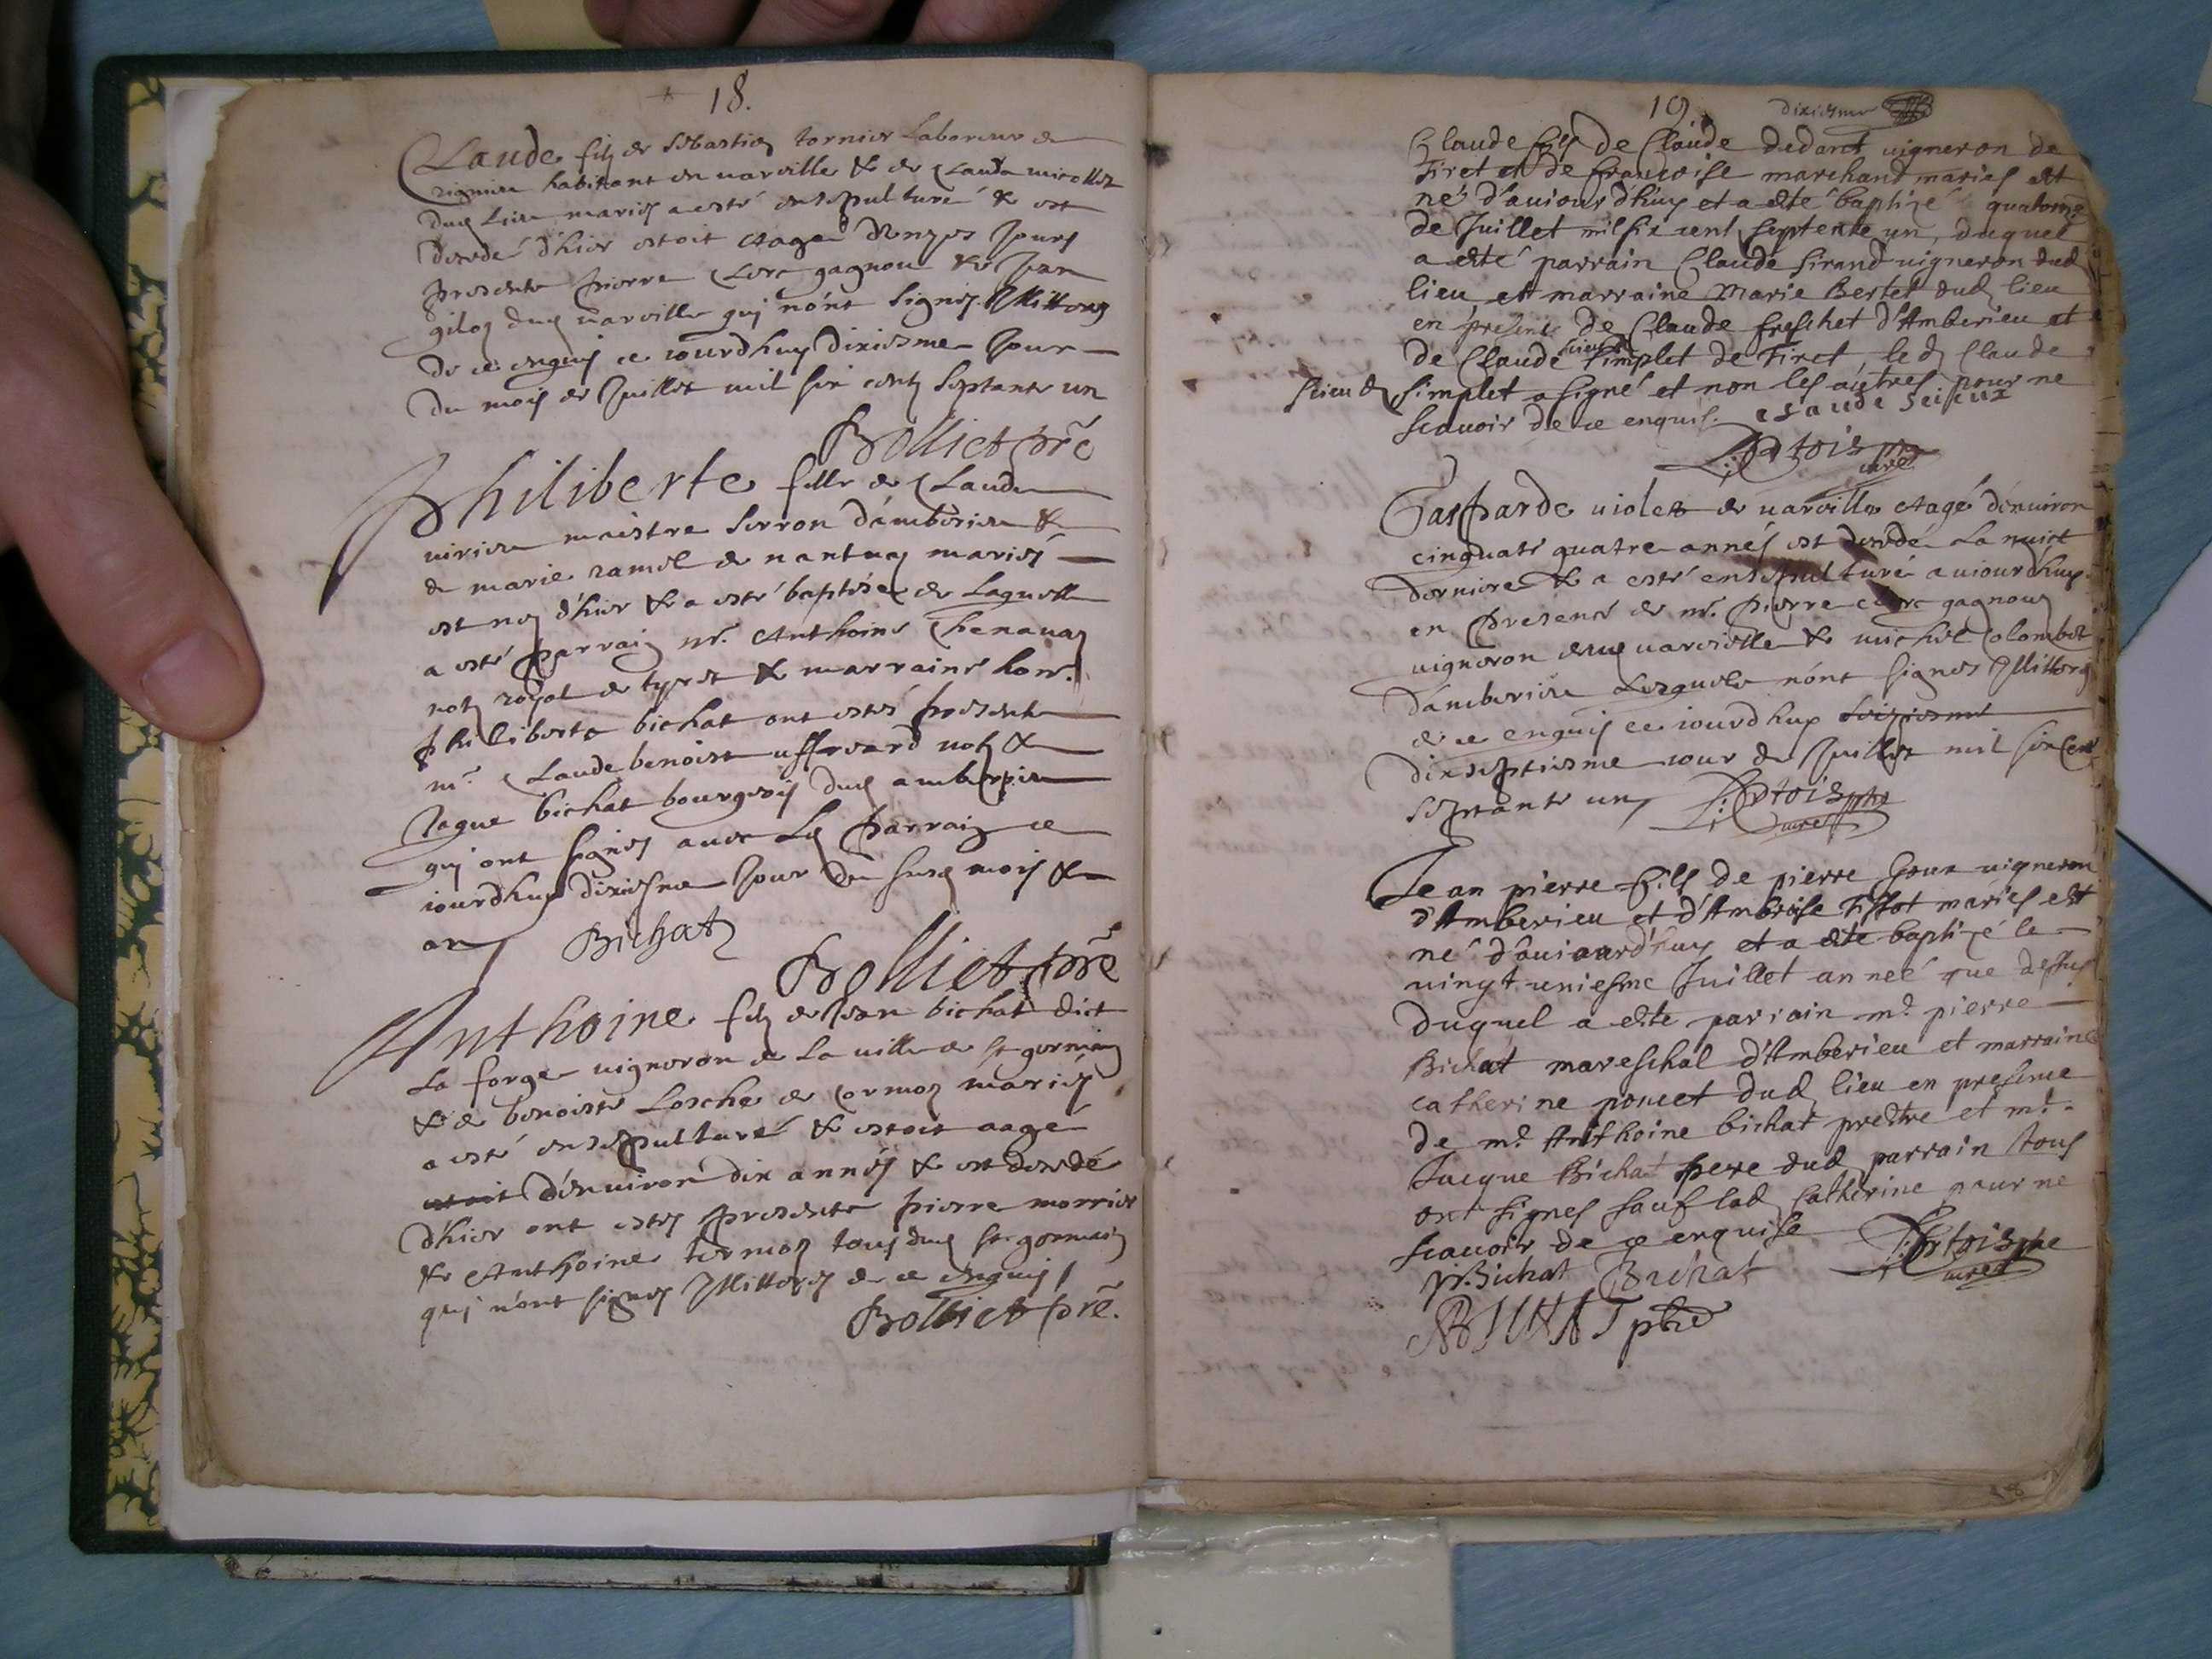 18.
Claude filz de Sebastien tornier Laboreur de
habittant en varville & de Clauda
dud Lieu mariés a esté ensepulturé & est
decedé d'hier estoit eagé d'onzes Jours
presents pierre Clerc gagnon & Jean
dud varville qui n'ont signés Illitterés
de ce enquis ce iourdhuy dixiesme Jour
du mois de Juillet mil six cents septante un
Bolliet pre
Philiberte fille de Claude
maistre serron d'amberieu &
de marie ramel de nantuaz mariés
est née d'hier & a esté baptisée de Laquelle
a esté parrain mr. Anthoine Chenavaz
not. royal de tyret & marraine hon.
philiberte bichat ont estés presents
mr. Claude benoist not. &
Jaque bichat bourgeois dud amberieu
qui ont signés avec Le parrain ce
iourdhuy dixiesme Jour du susd mois &
an Bichat
Bolliet pre
Anthoine filz de Jean bichat dict
La forge vigneron de La ville de st germain
& de benoiste Losche de Cormoz mariés
a esté ensepulturé & estoit aagé
estoit d'environ dix années & est decedé
d'hier ont estés presents pierre morrier
& Anthoine tous dud st germain
qui n'ont signés Illitterés de ce enquis
Bolliet pre.
19 dixiesme
Claude fils de Claude dedant vigneron de
Tiret et de francoise marchand mariés est
né d'auiourd'huy et a esté baptizé quatorze
de Juillet mil six cent septente un, duquel
a esté parrain Claude Sirand vigneron dud
lieu et marraine Marie Bertet dud lieu
en presence de Claude freschet d'Amberieu et
de Claude simplet de Tiret, led Claude
simplet a signé et non les autres pour ne
scauoir de ce enquis. claude
Artois pre
curé
Gasparde violet de varville eagé d'environ
cinquate quatre annés est decedé La nuict
derniere & a esté ensepulturé auiourdhuy
en presence de mr. pierre clerc gagnon
vigneron dud varville & michel Colombet
d'amberieu Lesquels n'ont signés Illitterés
de ce enquis ce iourdhuy seiziesme
dixseptiesme iour de Juillet mil six cent
septante un Artois pre
curé
Jean pierre fils de pierre vigneron
d'Amberieu et d'Ambroise Tissot mariés est
né d'auiourd'huy et a esté baptizé le
vingt uniesme Juillet anneé que dessus
duquel a esté parrain mr. pierre
Bichat mareschal d'Amberieu et marraine
catherine poncet dud lieu en presence
de mr. Anthoine bichat prestre et mr.
Jacque Bichat pere dud parrain tous
ont signés sauf lad Catherine pour ne
scauoir de ce enquise Artois pre
curé
pr. Bichat Bichat
BICHAT pbre